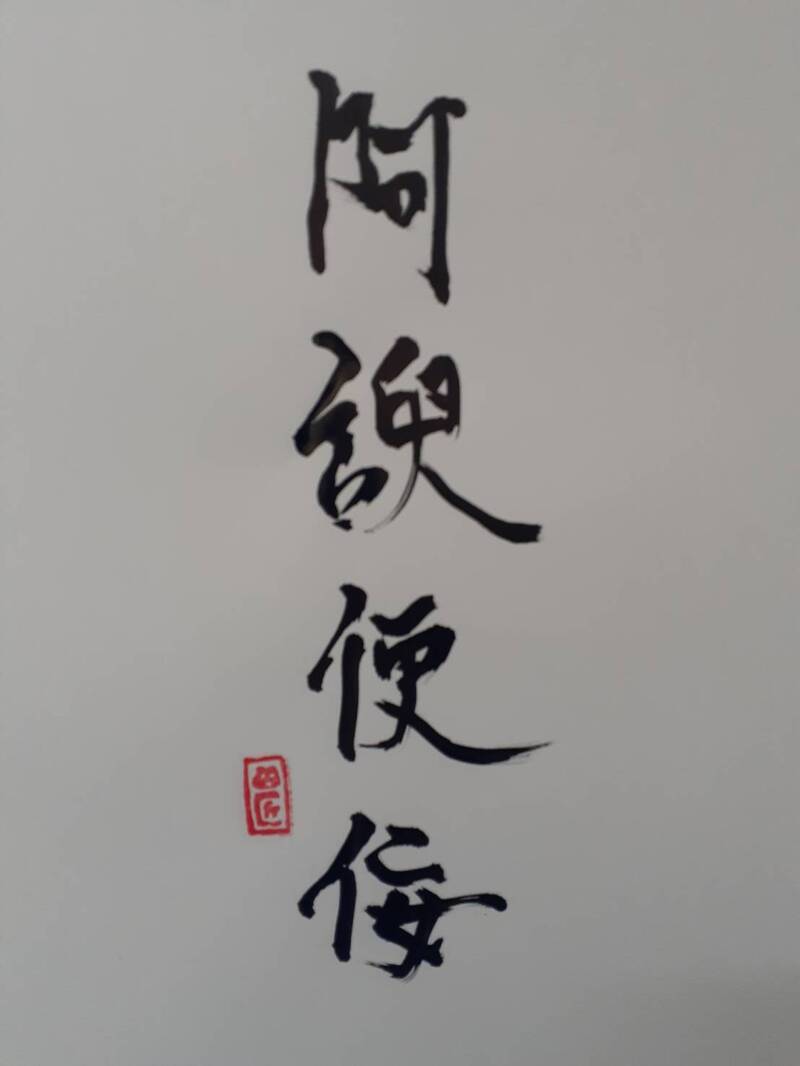 阿諛便佞